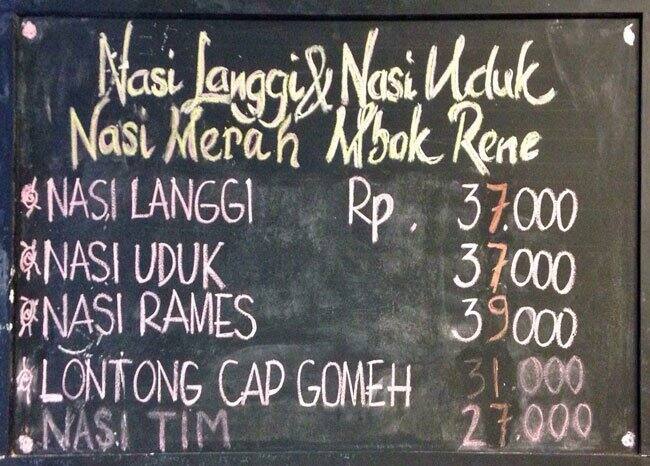 Nasi Langgi & Nasi Uduk
Nasi Merah Mbok Rene
NASI LANGGI Rp. 37.000
NASI UDUK 37000
NASI RAMES 39000
LONTONG CAP GOMEH 31 000
NASI TIM 27.000